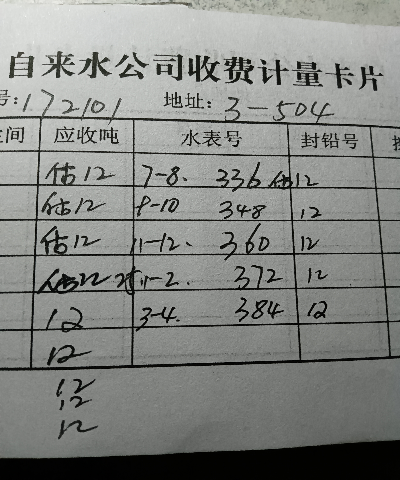 自来水公司收费计量卡片
号:172101 地址:3-504
间 应收吨 水表号 封铅号
估12 7-8. 336 估12
估12 9-10 348 12
估12 11-12. 360 12
估12 11-2. 372 12
12 3-4. 384 12
12
12
12
12